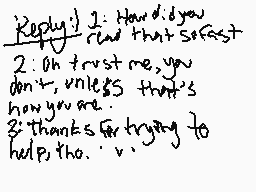 Reply:) 1: How did you
read that so fast
2: Oh trust me, you
don't, unless that's
how you are.
3: thanks for trying to
help, tho. ' v '